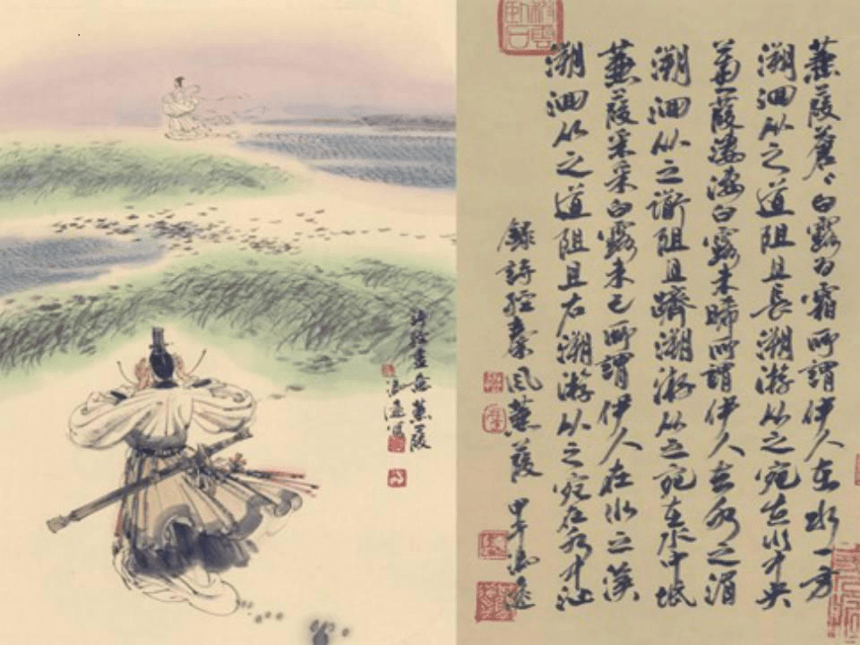 蒹葭蒼〻白露为霜所謂伊人在水一方
溯洄从之道阻且長溯游从之宛在水中央
蒹葭凄凄白露未晞所謂伊人在水之湄
溯洄从之衜阻且躋溯游从之宛在水中坻
蒹葭采采白露未已所謂伊人在水之涘
溯洄从之道阻且右溯游从之宛在水中沚
錄詩經秦风蒹葭 甲午冯遠
詩經畫意蒹葭
冯遠写